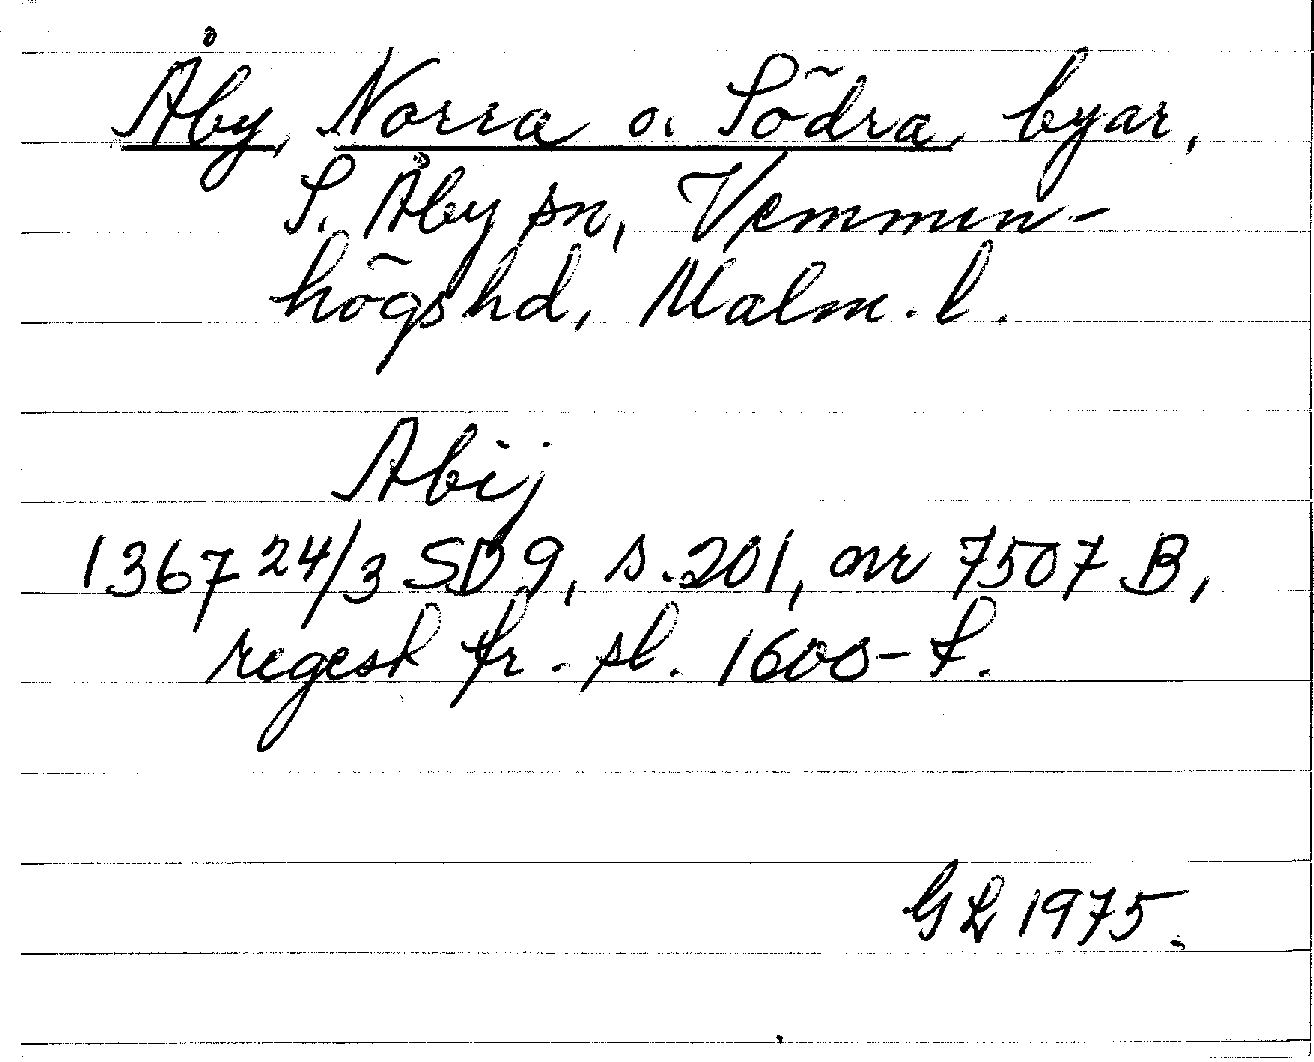 Åby, Norra o. Södra, byar,
S. Åby sn, Vemmen-
högs hd, Malm. l.
Abij
1367 24/3 SD 9, s. 201, nr 7507 B,
regest fr. sl. 1600-t.
GL 1975.